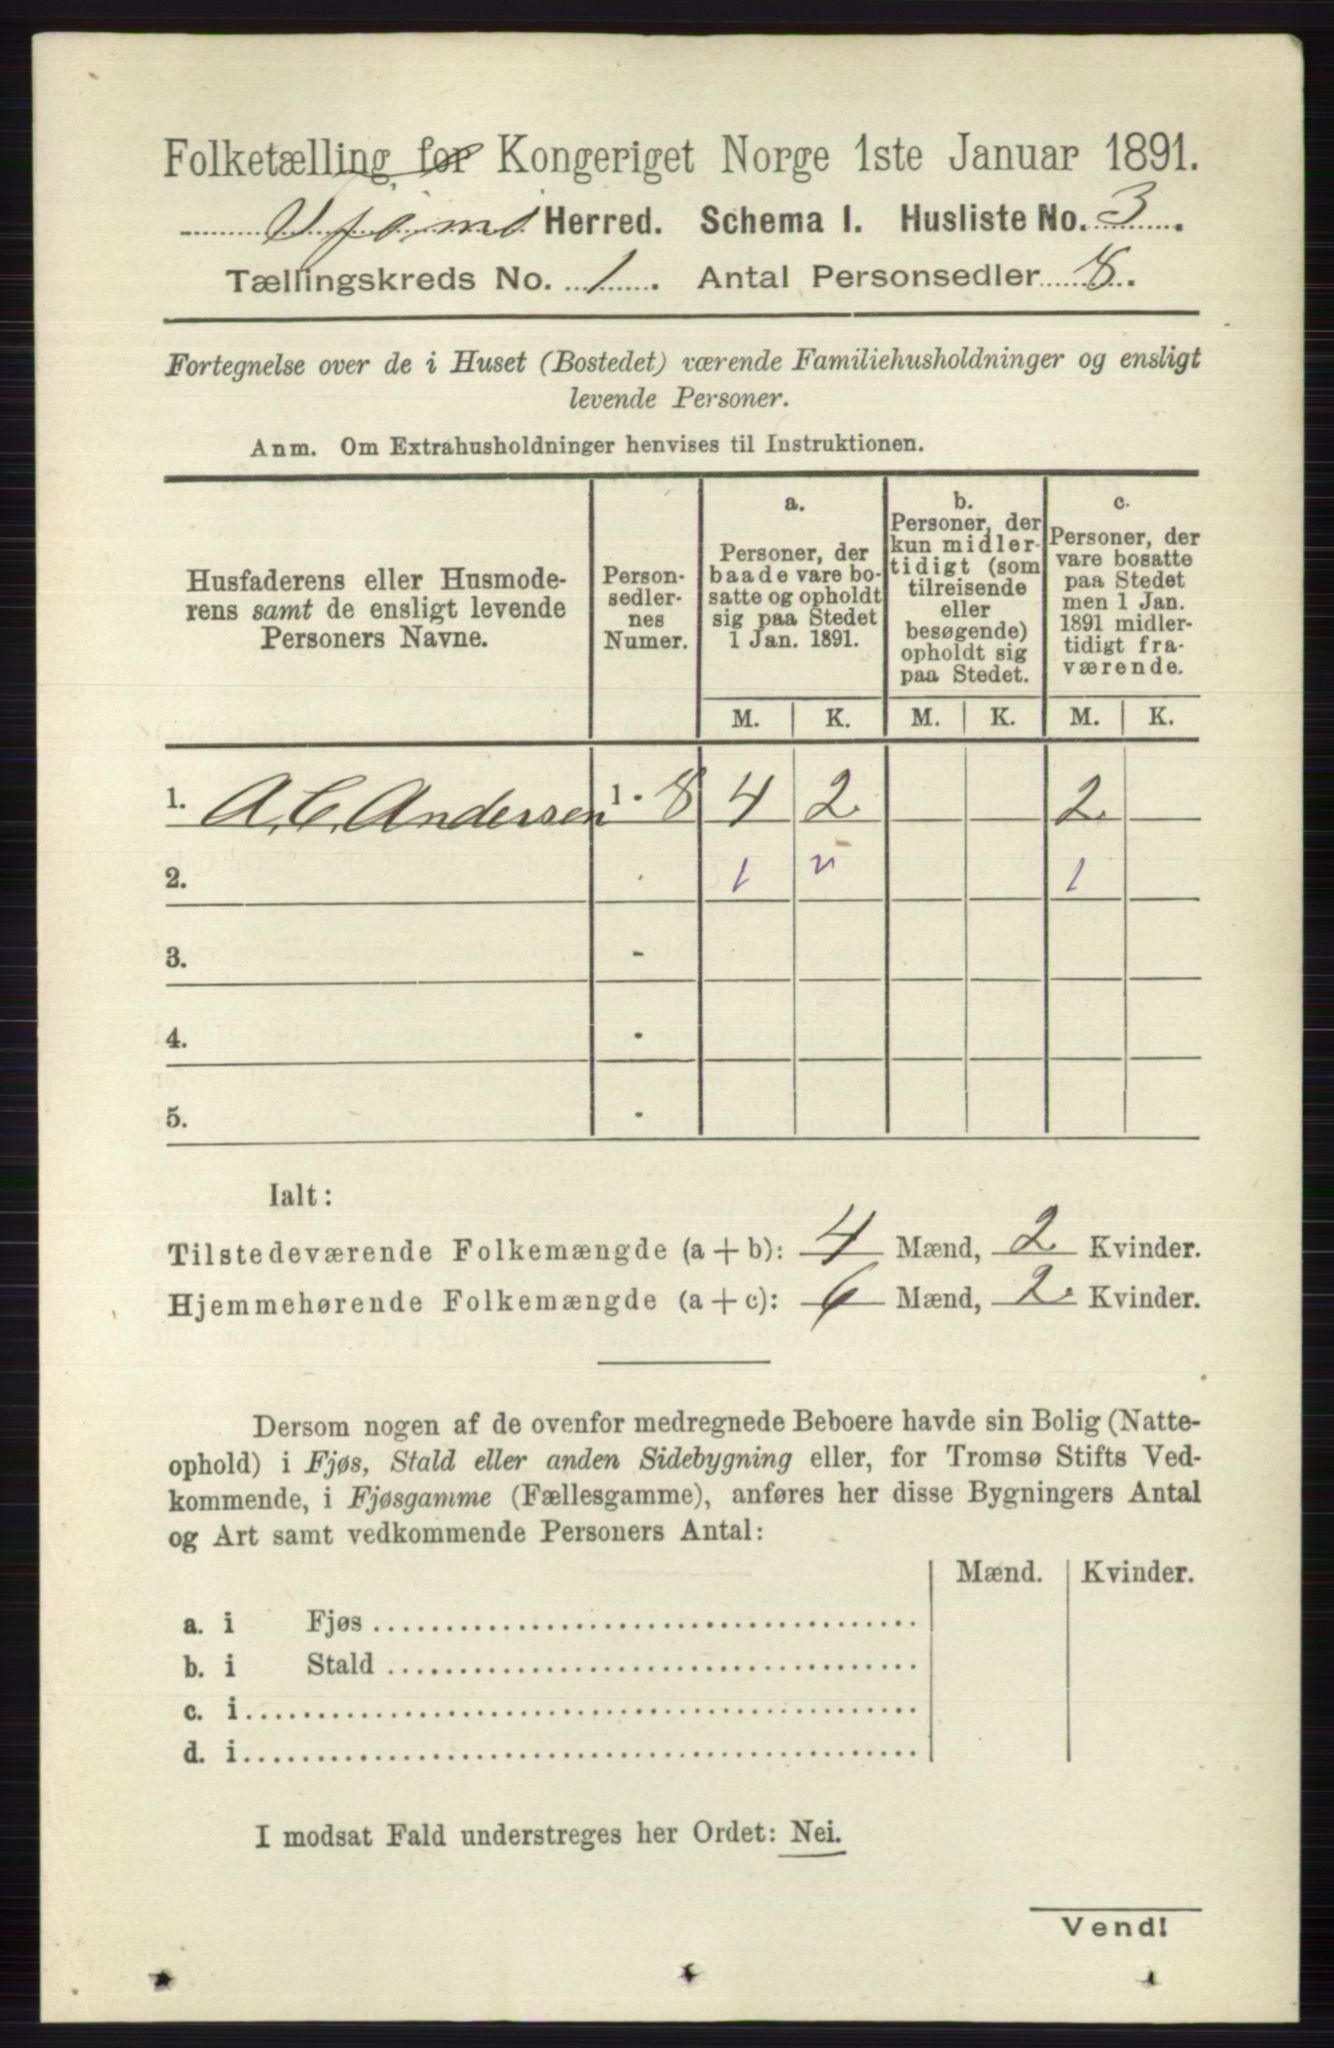 Folketælling for Kongeriget Norge 1ste Januar 1891.
Herred. Schema I. Husliste No. 3.
Tællingskreds No. 1. Antal Personsedler 8.
Fortegnelse over de i Huset (Bostedet) værende Familiehusholdninger og ensligt
levende Personer.
Anm. Om Extrahusholdninger henvises til Instruktionen.
Husfaderens eller Husmode-
rens samt de ensligt levende
Personers Navne.
Person-
sedler-
nes
Numer.
a.
Personer, der
baade vare bo-
satte og opholdt
sig paa Stedet
1 Jan. 1891.
b.
Personer, der
kun midler-
tidigt (som
tilreisende
eller
besøgende)
opholdt sig
paa Stedet.
c.
Personer, der
vare bosatte
paa Stedet
men 1 Jan.
1891 midler-
tidigt fra-
værende.
M. K. M. K. M. K.
1. A. C. Andersen 1 - 8 4 2 2
2. 1 1
3. -
4. -
5. -
Ialt:
Tilstedeværende Folkemængde (a + b): 4 Mænd, 2 Kvinder.
Hjemmehørende Folkemængde (a + c): 6 Mænd, 2 Kvinder.
Dersom nogen af de ovenfor medregnede Beboere havde sin Bolig (Natte-
ophold) i Fjøs, Stald eller anden Sidebygning eller, for Tromsø Stifts Ved-
kommende, i Fjøsgamme (Fællesgamme), anføres her disse Bygningers Antal
og Art samt vedkommende Personers Antal:
Mænd. Kvinder.
a. i Fjøs
b. i Stald
c. i
d. i
I modsat Fald understreges her Ordet: Nei.
Vend!